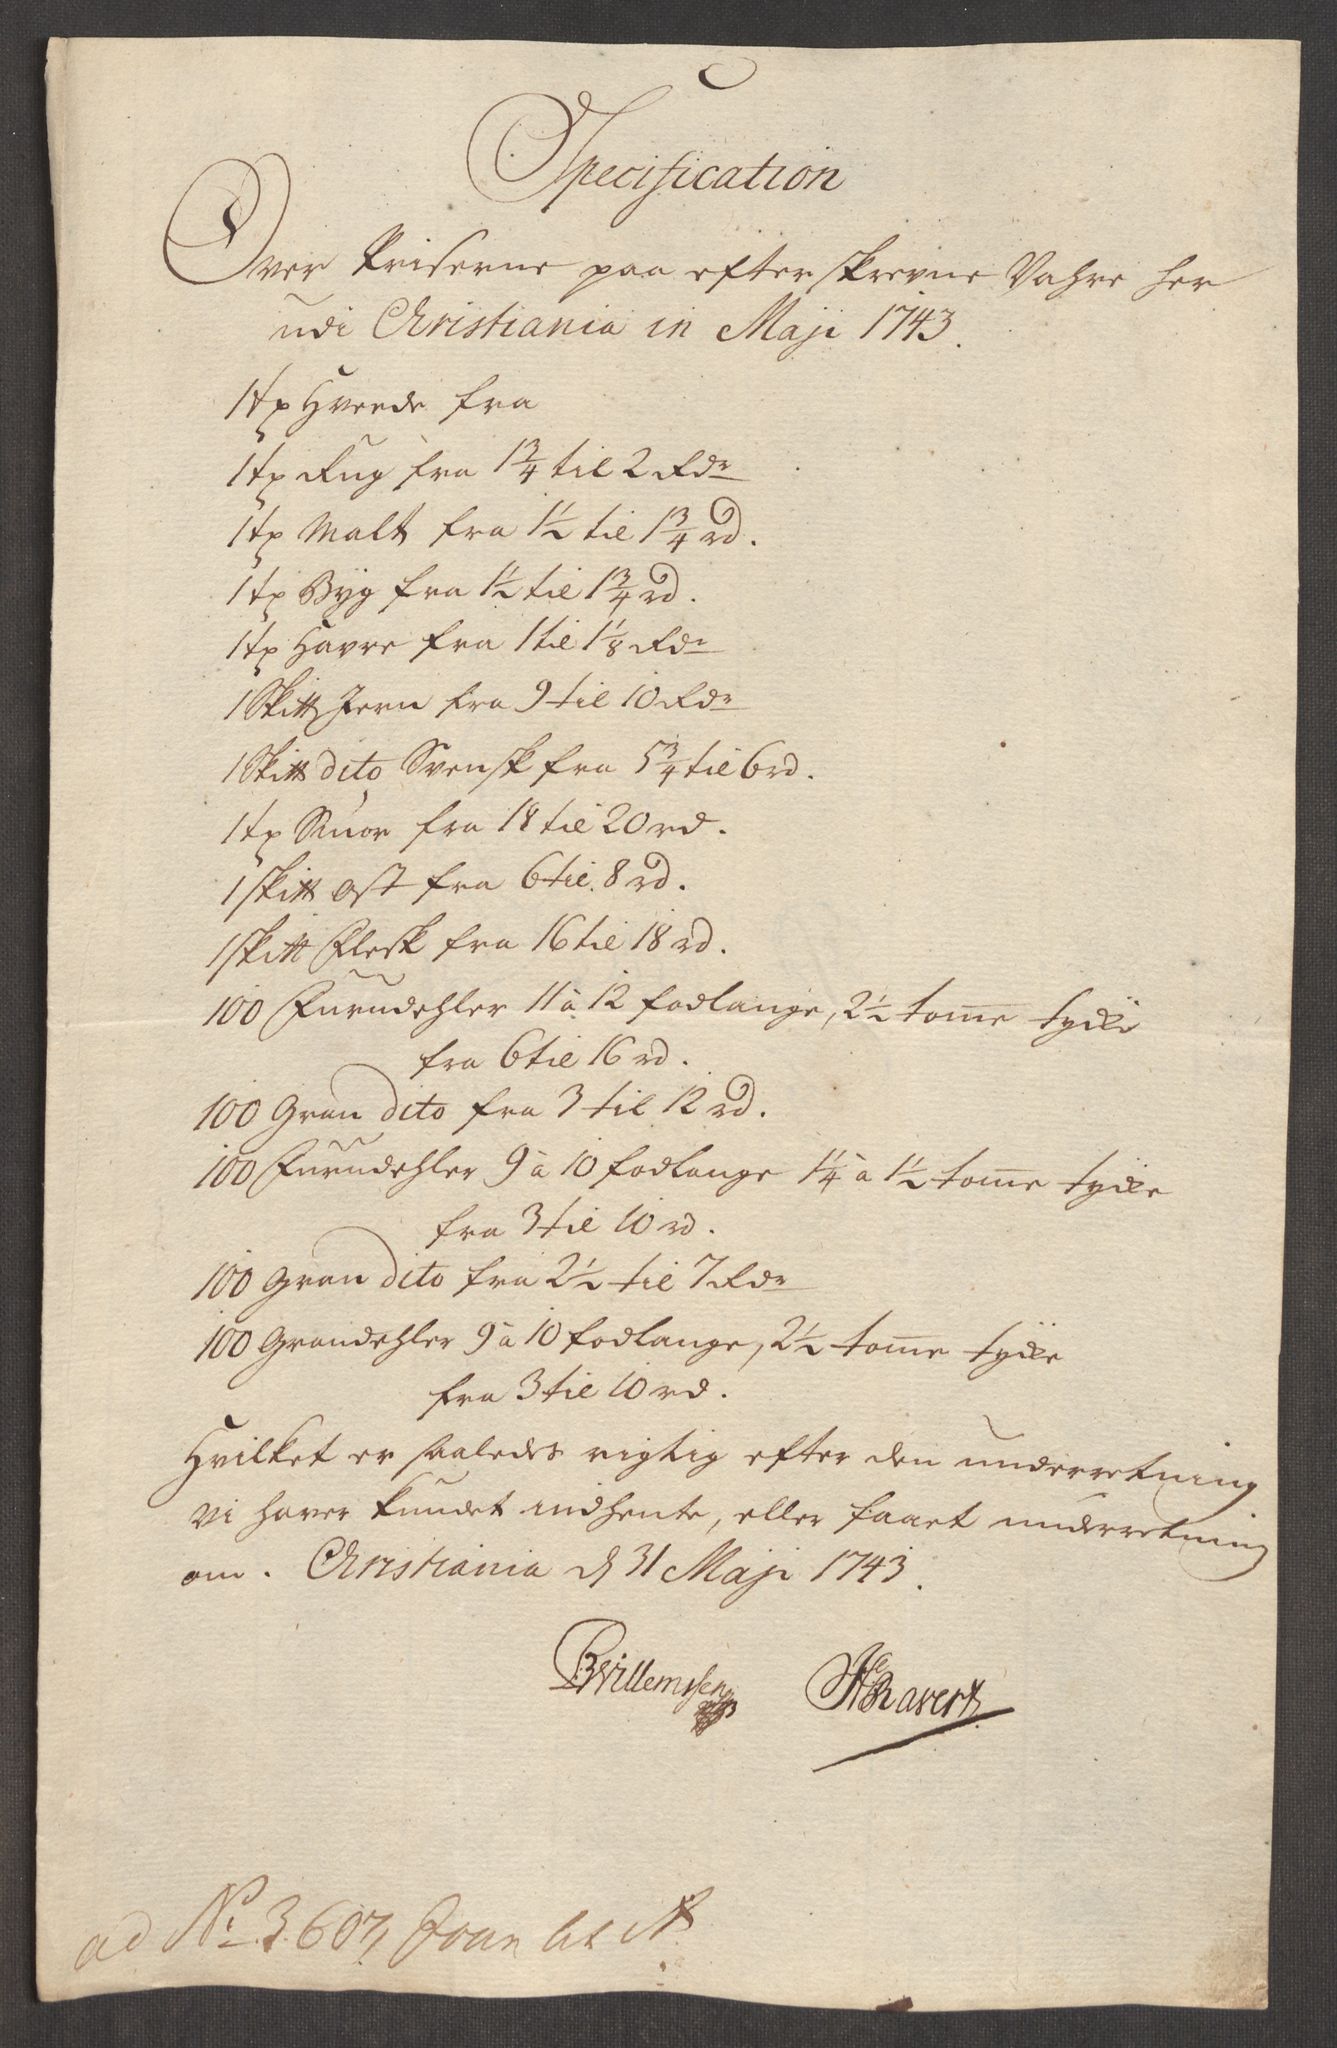 Specification
Over Priserne paa efterskrevne Vahre her
udi Christiania in Maji 1743.
1 tp Hvede fra
1 tp Rug fra 1¾ til 2 Rdr
1 tp Malt fra 1½ til 1¾ rd.
1 tp Byg fra 1½ til 1¾ rd.
1 tp Havre fra 1 til 1⅛ Rdr
1 Skitt Jern fra 9 til 10 Rdr
1 Skitt dito Svensk fra 5¾ til 6 rd.
1 tp Smør fra 18 til 20 rd.
1 skitt Ost fra 6 til 8 rd.
1 skitt Flesk fra 16 til 18 rd.
100 Furudehler 11 à 12 fodlange, 2½ tomme tycke
fra 6 til 16 rd.
100 Gran dito fra 3 til 12 rd.
100 Furudehler 9 à 10 fodlange 1¼ à 1½ tomme tycke
fra 3 til 10 rd.
100 Gran dito fra 2½ til 7 Rdr
100 Grandehler 9 à 10 fodlange, 2½ tomme tycke
fra 3 til 10 rd.
Hvilket er saaledes rigtig efter den underretning
vi haver kundet indhente, eller faaet underretning
om. Christiania d 31 Maji 1743.
BWillemssen
Ravert
ad No 3607, Joun lit A